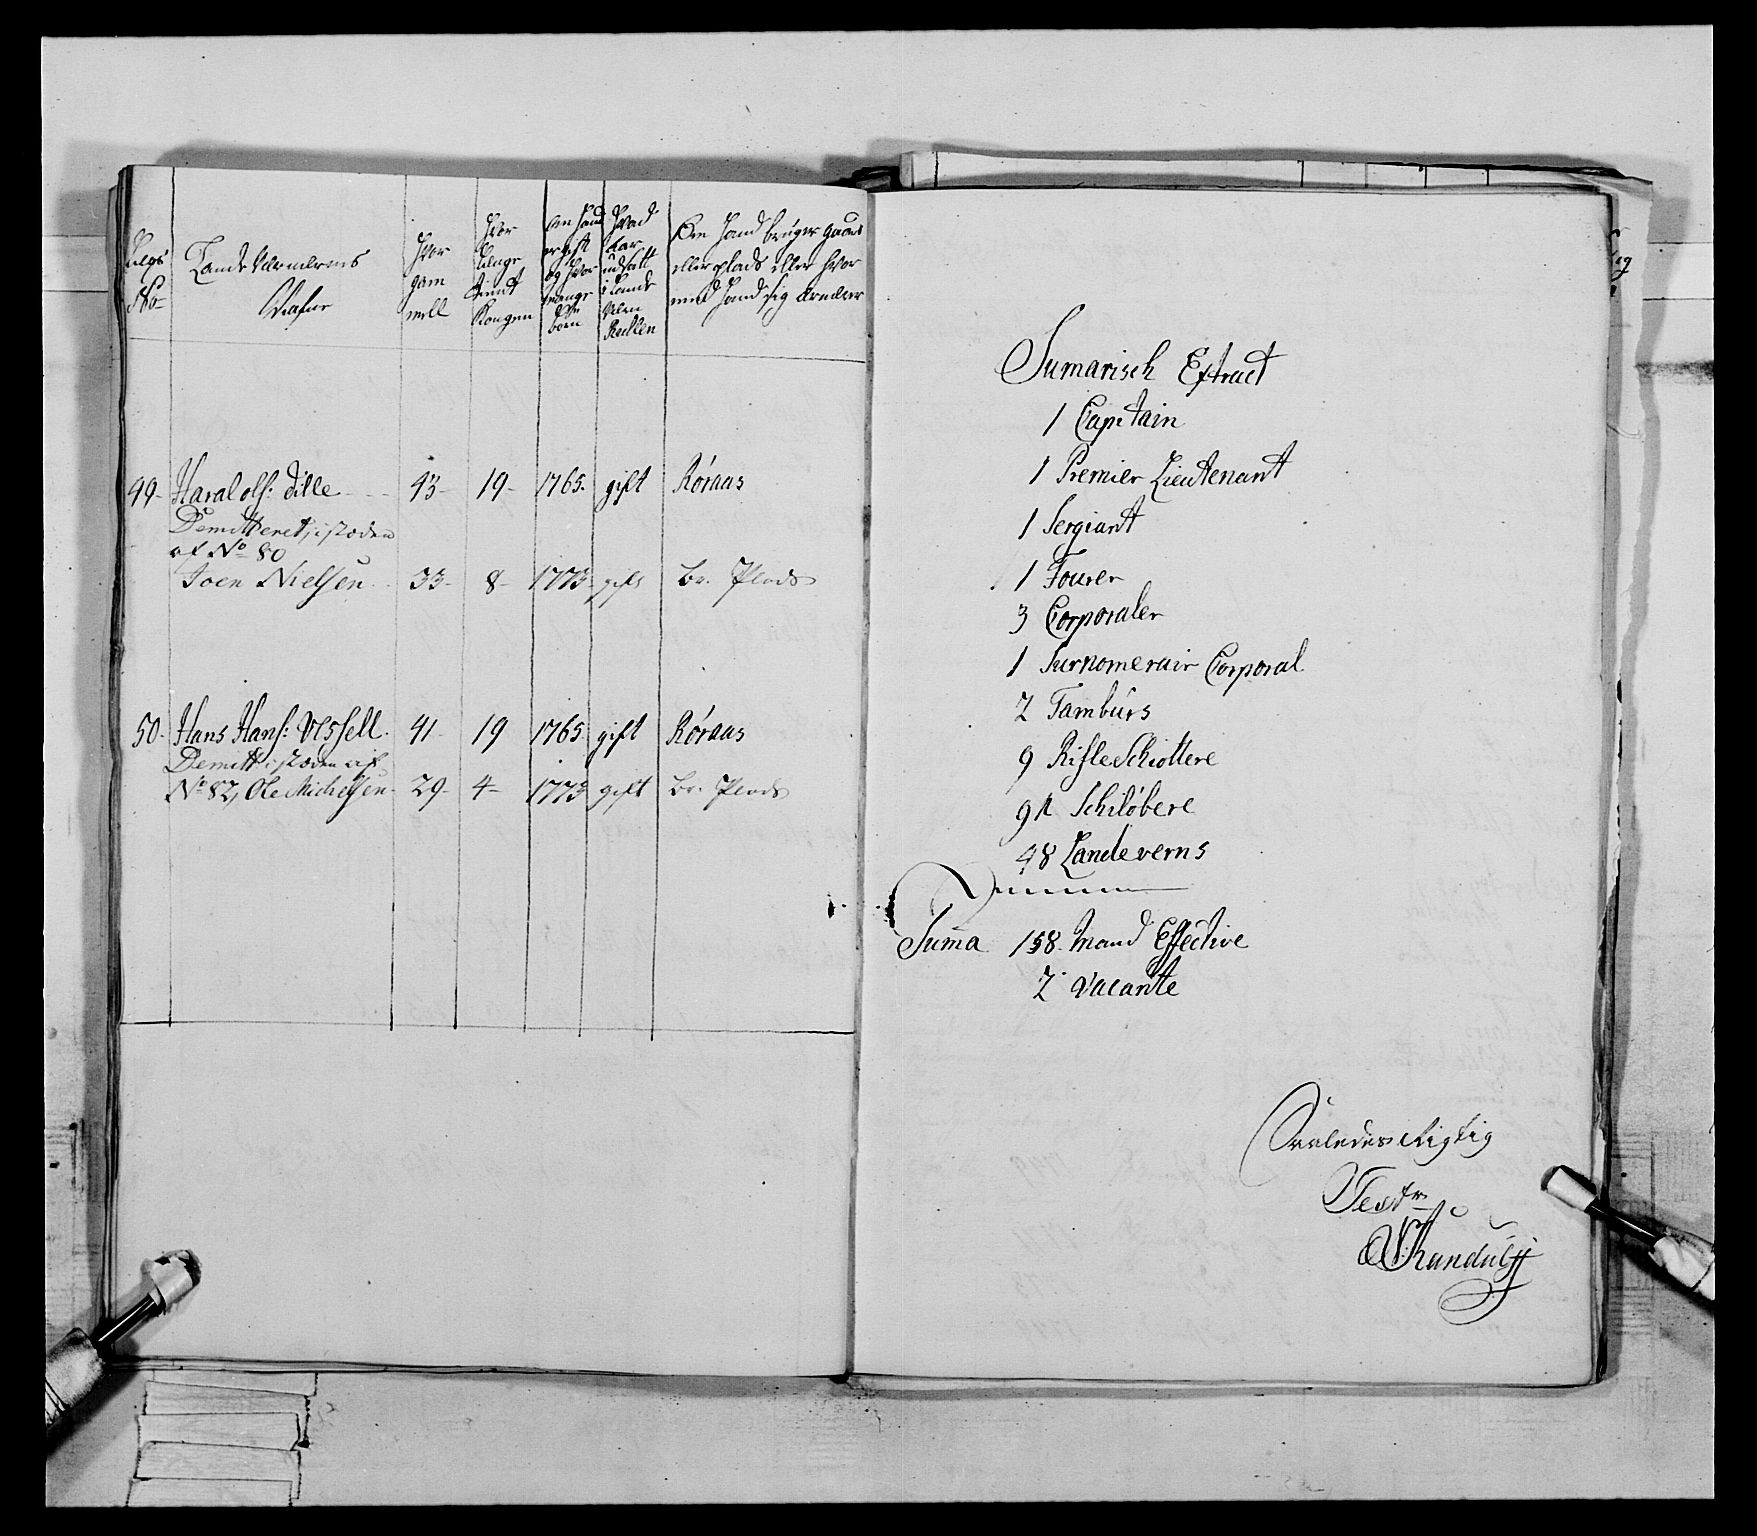 Legs
No
Lande Værnernes
Nafne
Hvor
gam
mell
Hvor
længe
tient
Kongen
Om hand
er gift
og hvor
mange
børn
Hvad
Aar
udsatt
i Lande
Væ̈rn
Rullen
Om hand bruger gaard
eller plads eller hvor
med hand sig ernærer
49- Haral Ols: Dille 43- 19- 1765. gift Røraas
Demitteret, i stæden
af No 80
Joen Nielsen 33- 8- 1773 gift br. Plads
50- Hans Hans: Vessell. 41- 19 1765 gift Røraas
Demitt: i stæden af
No 82, Ole Michelsen- 29- 4- 1773 gift br. Plads
Sumarisch Extract
1 Capitain
1 Premier Lieutenant
1 Sergiant
1 Fourer
3 Corporaler
1 Surnomerair Corporal
2 Tamburs
9 Rifle Schiøttere
91 Schiløbere
48 Landeverns
Suma 158. Mand Effective
2 vacante
Saaledes Rigtig
Test